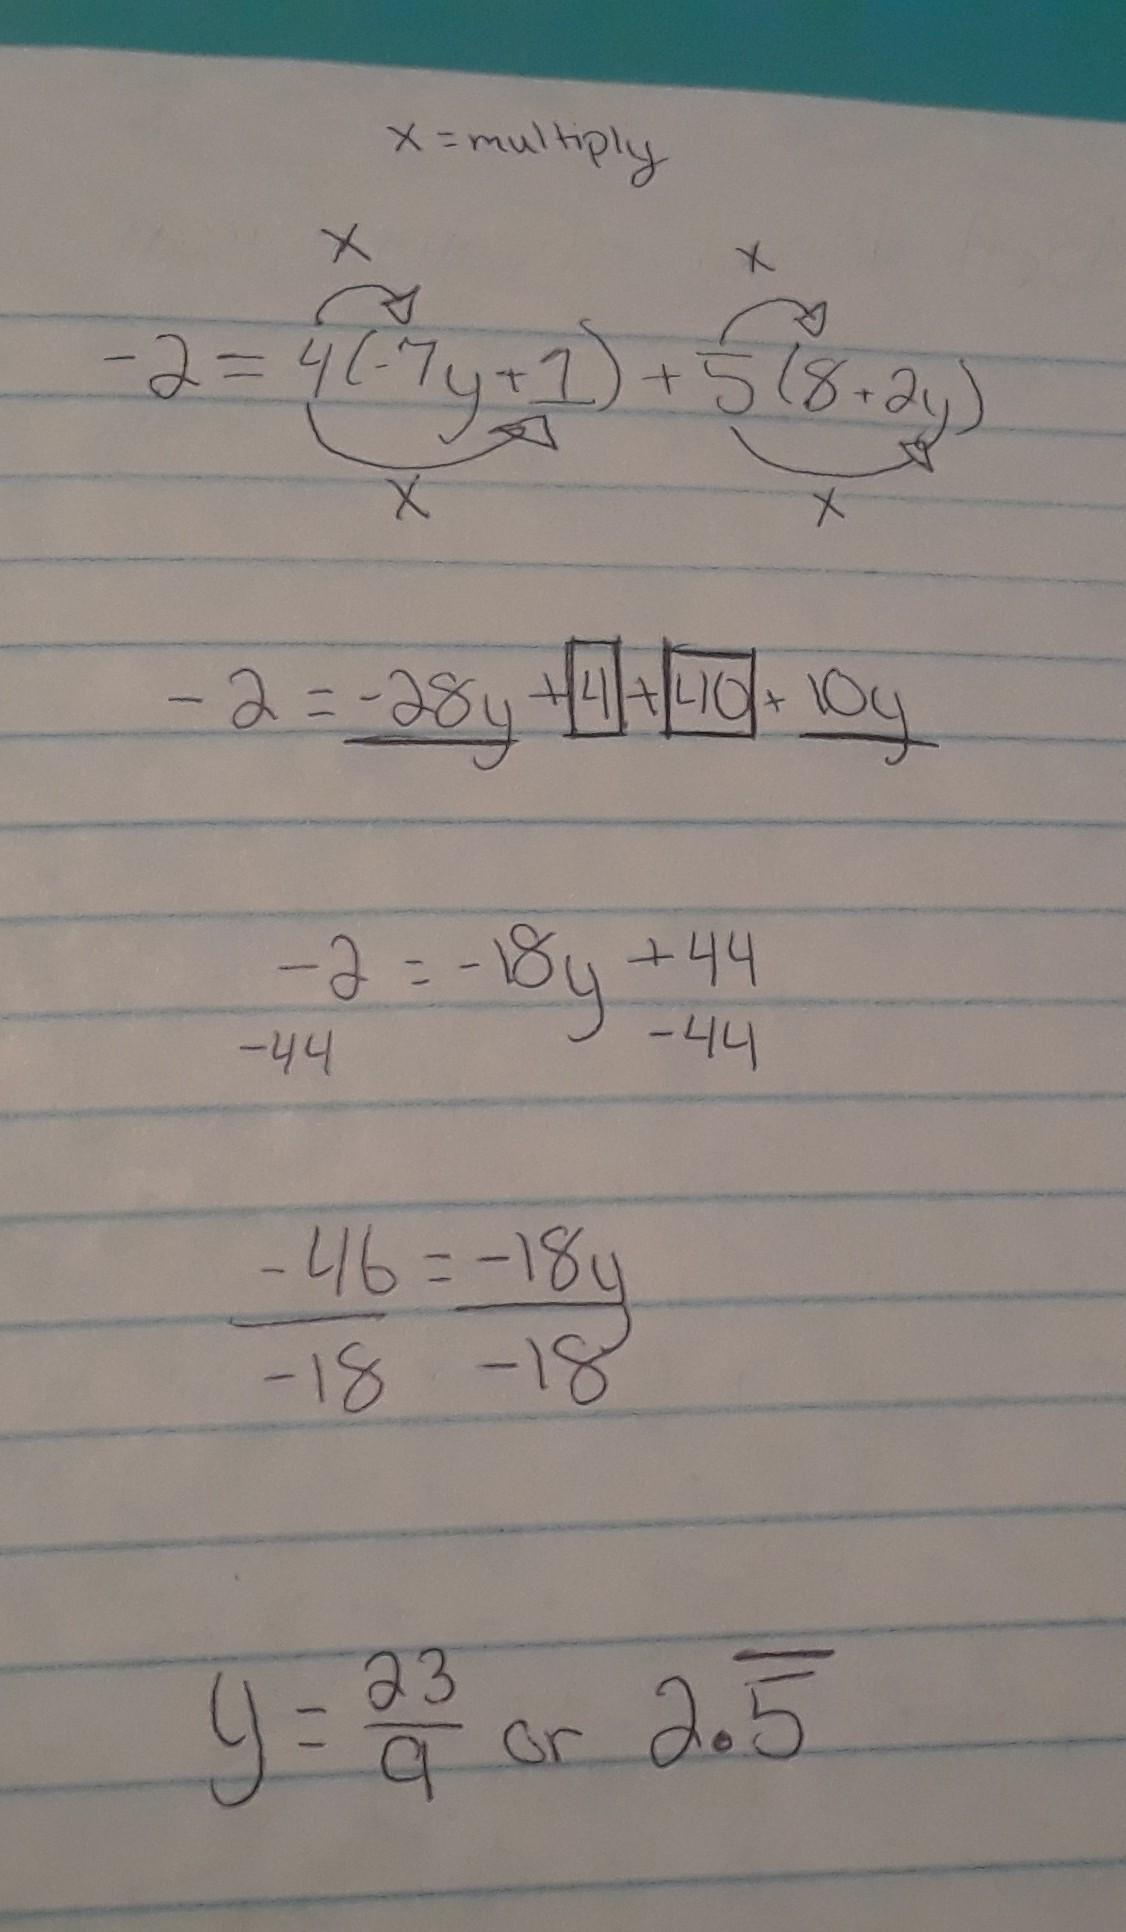 x = multiply
x x
-2 = 4(-7y+1) + 5(8+2y)
x x
-2 = -28y + 4 + 40 + 10y
-2 = -18y + 44
-44 -44
-46 = -18y
-18 -18
y = 23/9 or 2.5̅